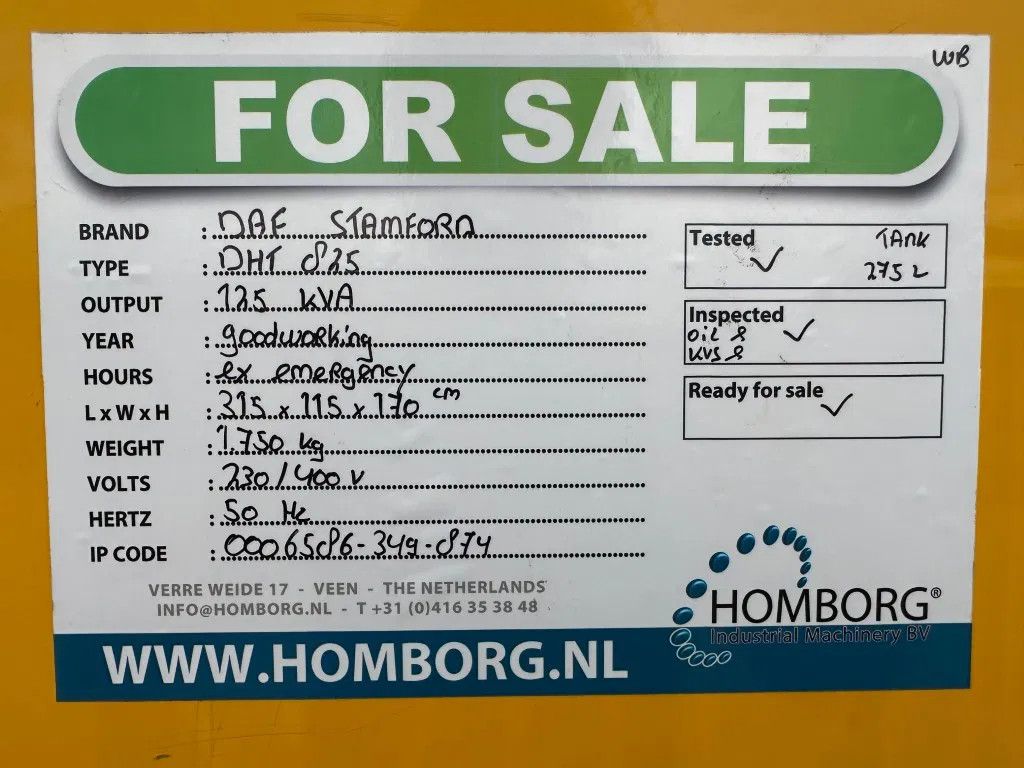 WB
FOR SALE
BRAND : DAF STAMFORD
TYPE : DHT 825
OUTPUT : 125 kVA
YEAR : goodworking
HOURS : ex emergency
L x W x H : 315 x 115 x 170 cm
WEIGHT : 1.750 kg
VOLTS : 230/400 V
HERTZ : 50 Hz
IP CODE : 0006586-349-874
Tested ✓ TANK
275 L
Inspected ✓
OiL &
KVS &
Ready for sale ✓
VERRE WEIDE 17 - VEEN - THE NETHERLANDS
INFO@HOMBORG.NL - T +31 (0)416 35 38 48
HOMBORG®
Industrial Machinery BV
WWW.HOMBORG.NL